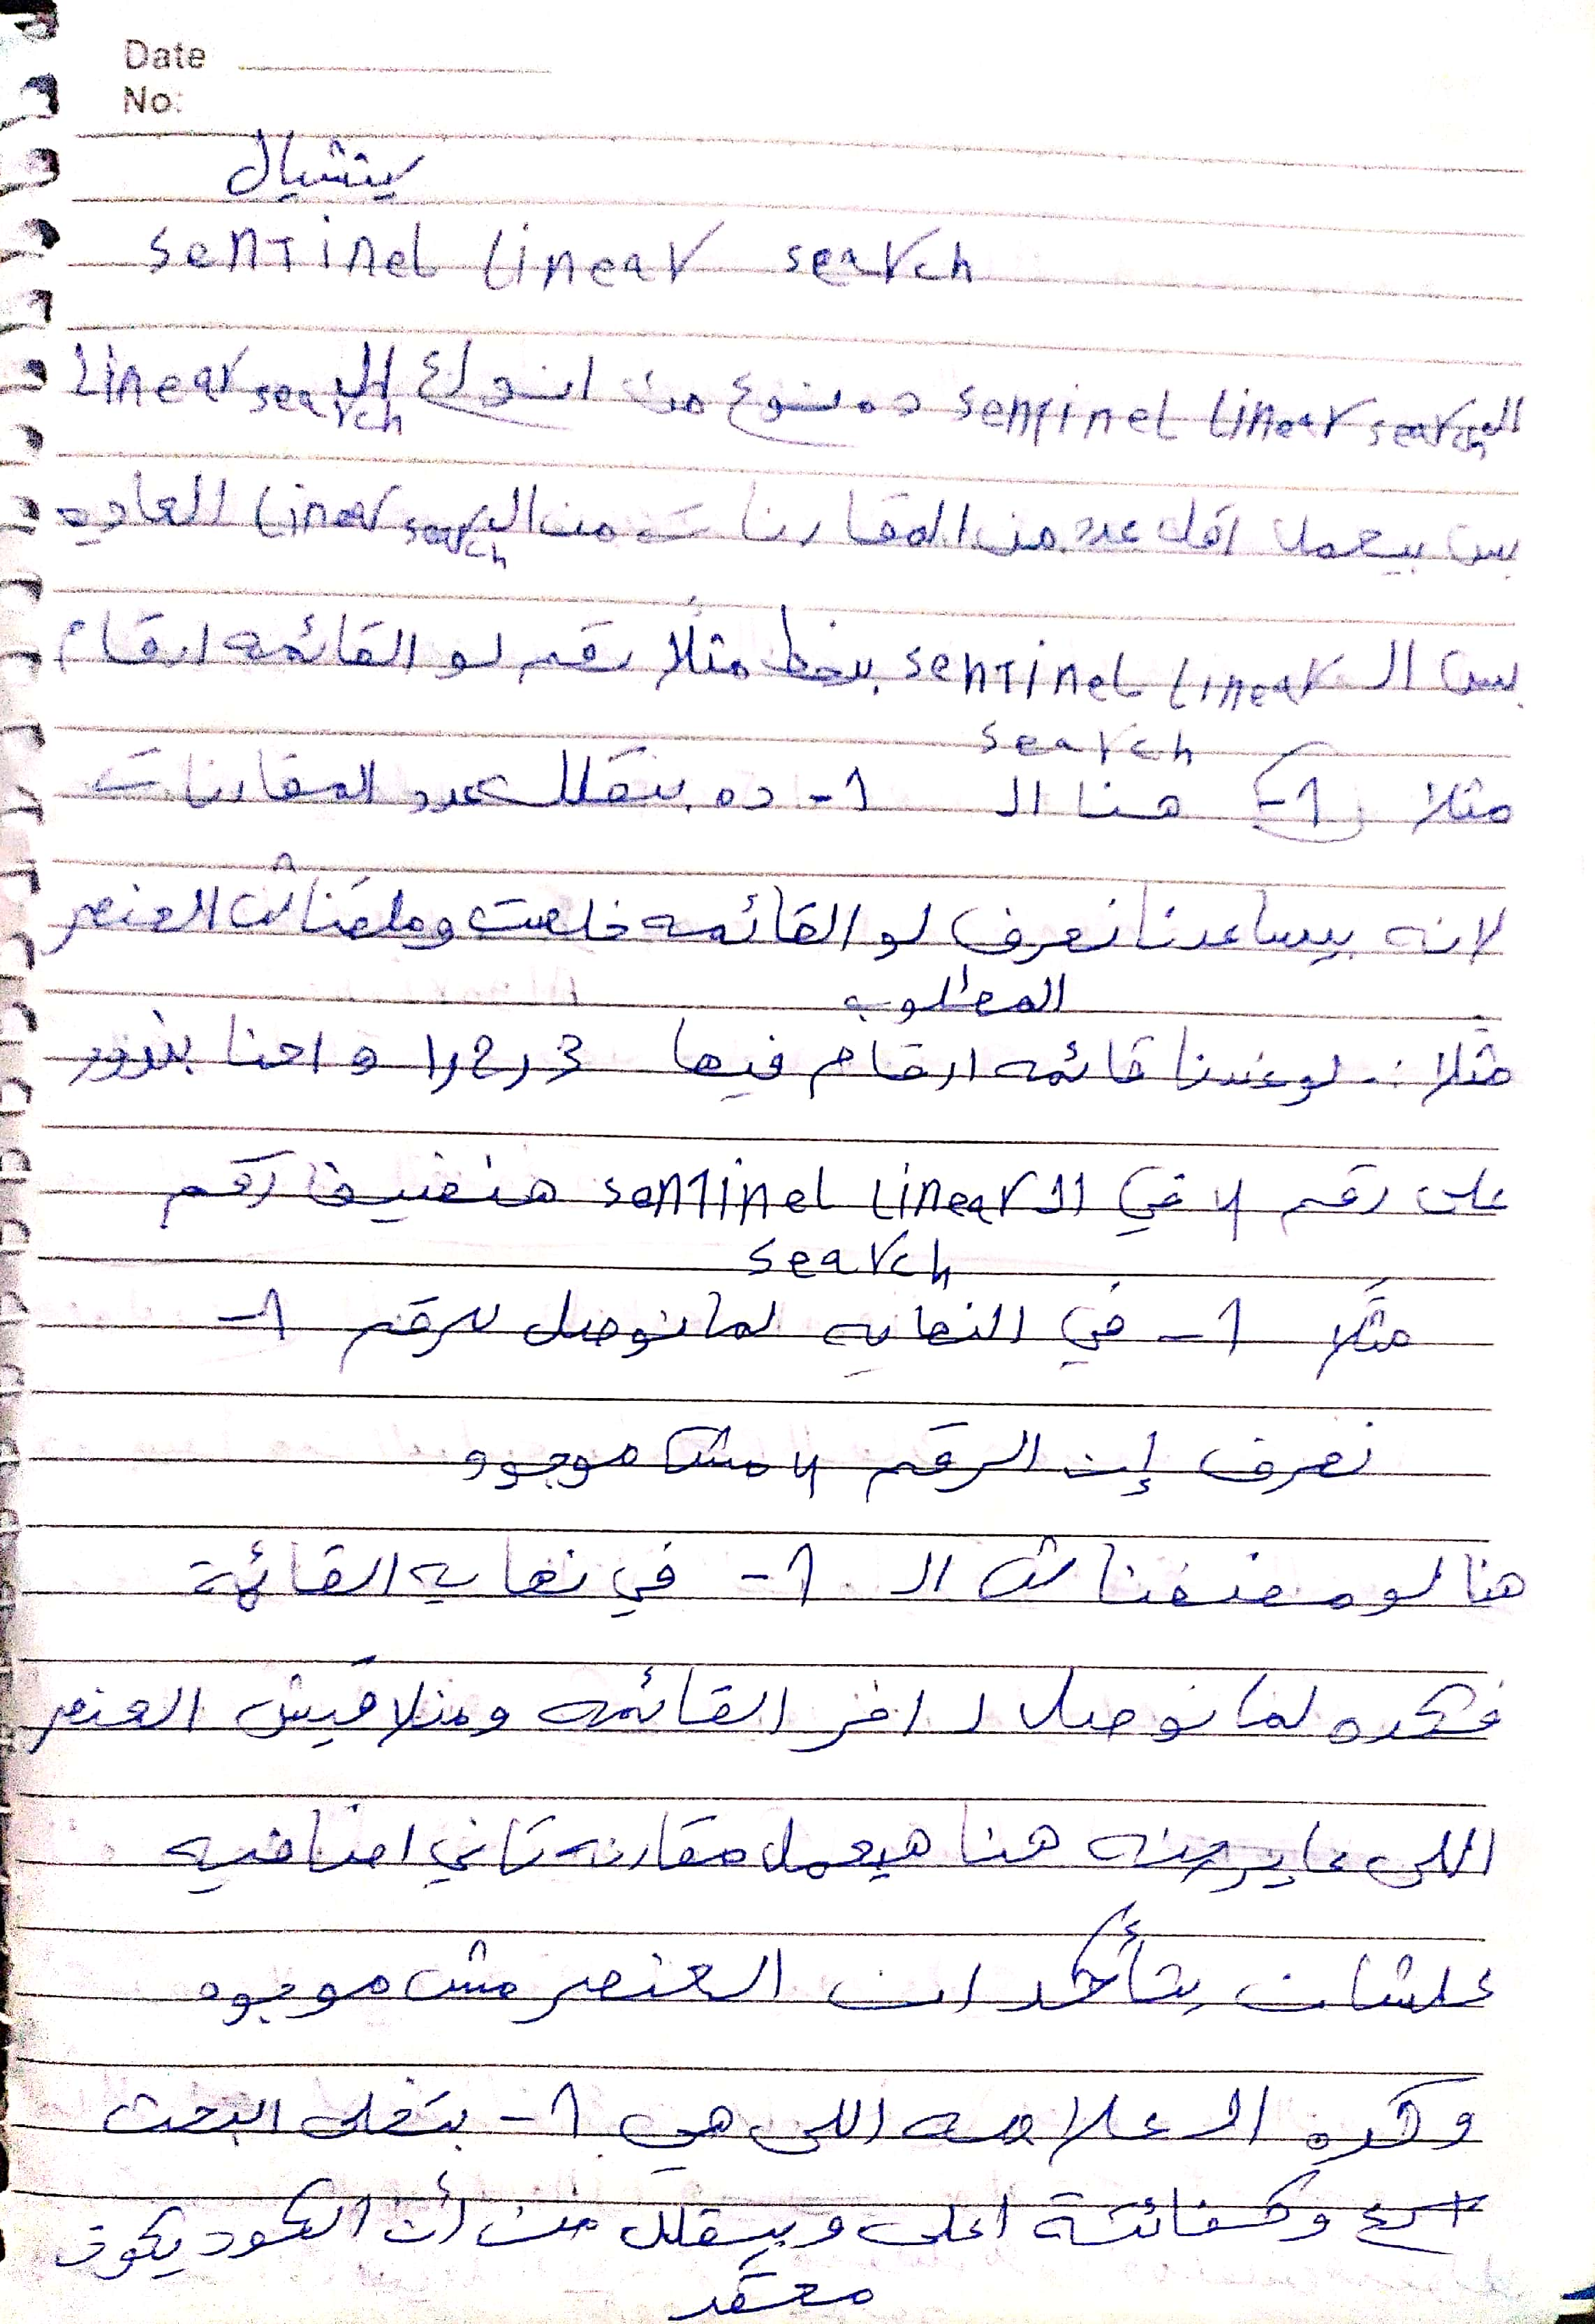 Date
No:
سينتيال
Sentinel Linear search
ال Sentinel Linear search ده نوع من انواع ال Linear search
بس بيعمل اقل عدد من المقارنات من ال Linear search العاديه
بس ال Sentinel Linear search بيحط مثلًا رقم لو القائمه ارقام
مثلا (-1) هنا ال -1 ده بيقلل عدد المقارنات
لانه بيساعدنا نعرف لو القائمه خلصت وملقناش العنصر
المطلوب
مثلا :- لو عندنا قائمه ارقام فيها 1,2,3 و احنا بندور
على رقم 4 في ال Sentinel Linear search هنضيف رقم
مثلًا -1 في النهايه لما نوصل للرقم -1
نعرف إن الرقم 4 مش موجود
هنا لو مضفناش ال -1 في نهايه القائمة
فكده لما نوصل ل اخر القائمه ومنلاقيش العنصر
اللى عايزينه هنا هيعمل مقارنه تاني اضافيه
علشان يتأكد ان العنصر مش موجود
وكده ال علامه اللى هي -1 بتخلى البحث
اسرع وكفائتة اعلى وبيقلل من أن الكود يكون
معقد